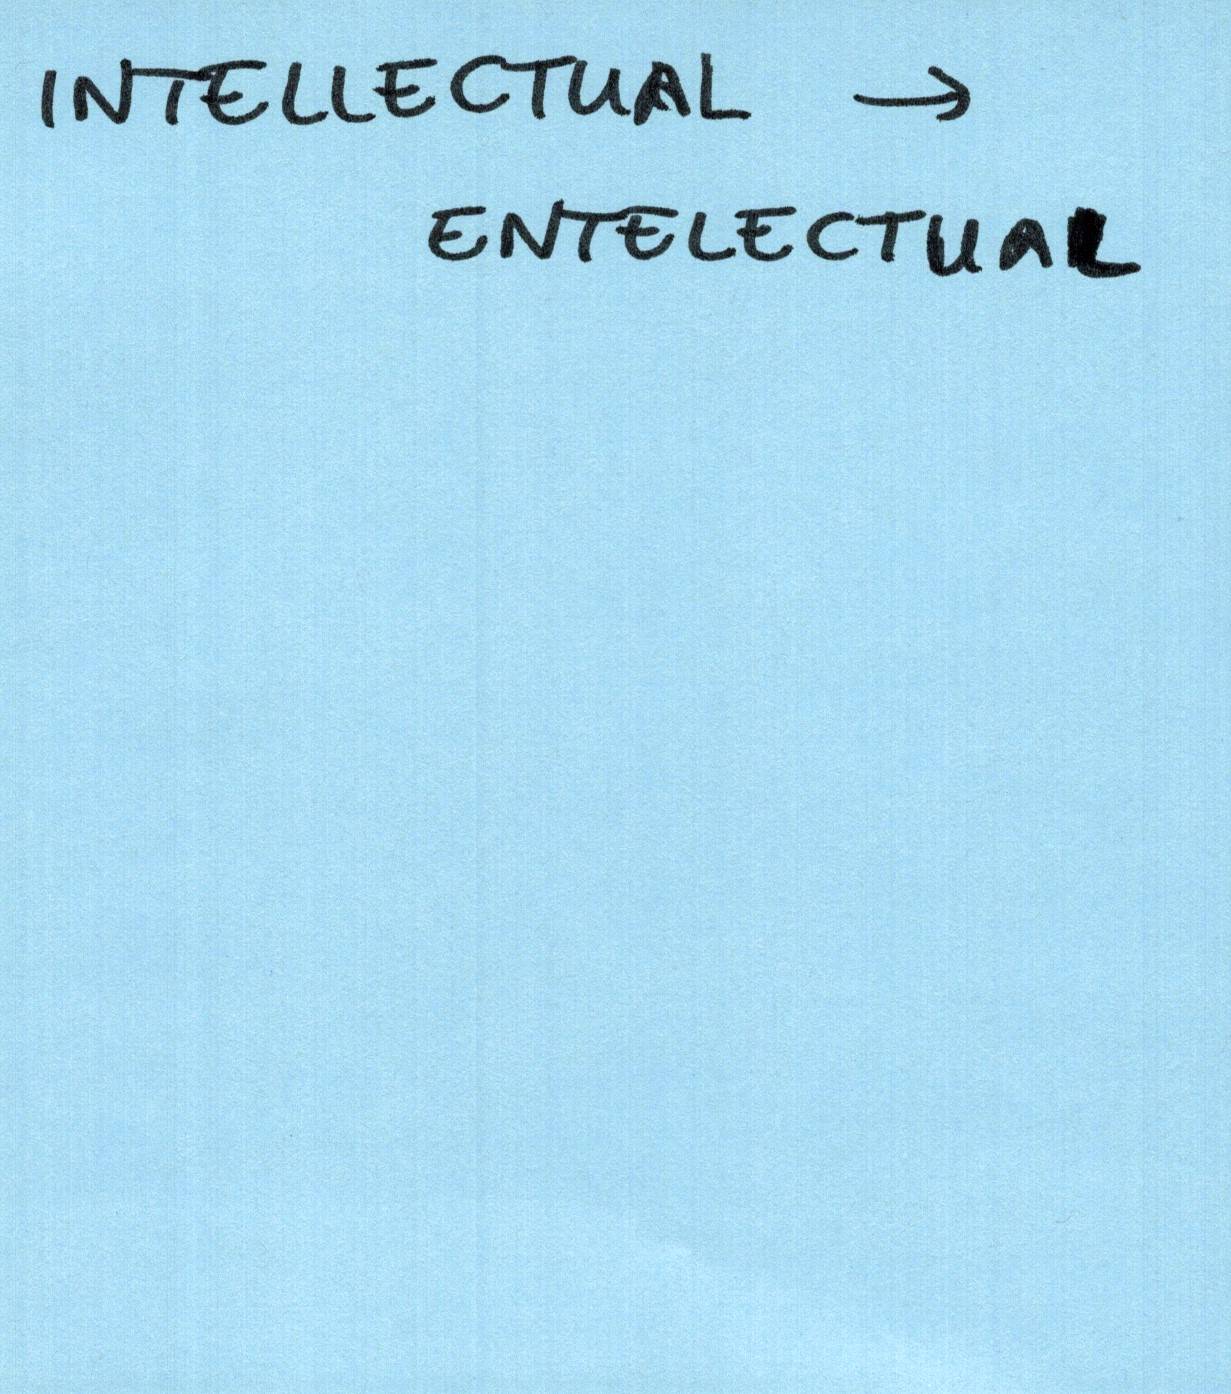 INTELLECTUAL →
ENTELECTUAL